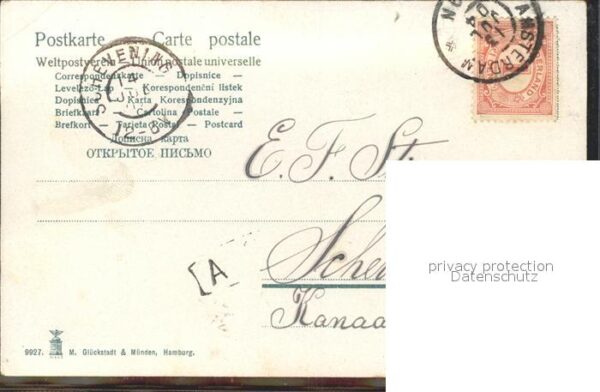 Postkarte — Carte postale
Weltpostverein — Union postale universelle
Correspondenzkarte — Dopisnice —
Levelező-Lap — Korespondenční lístek
Dopisnica — Karta Korespondencyjna
Briefkaart — Cartolina Postale —
Brefkort — Tarjeta Postal — Postcard
Дописна карта
ОТКРЫТОЕ ПИСЬМО
SCHEVENING
AMSTERDAM
E. F. St
Sche
Kanaa
[A
privacy protection
Datenschutz
9927. M. Glückstadt & Münden, Hamburg.